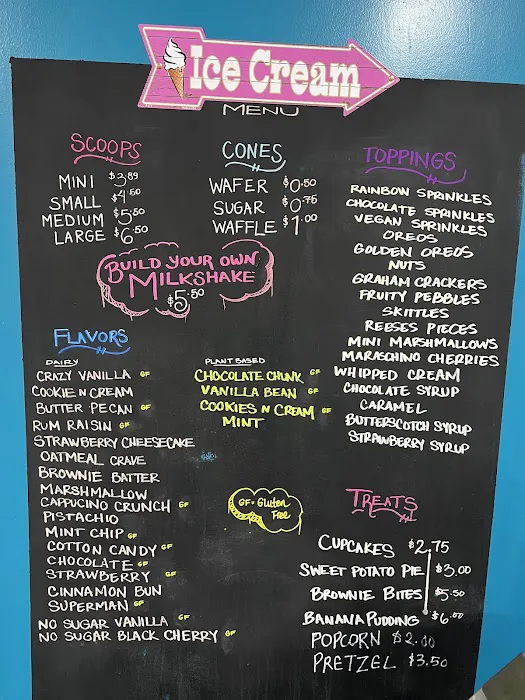 Ice Cream
MENU
SCOOPS
MINI $3.89
SMALL $4.50
MEDIUM $5.50
LARGE $6.50
CONES
WAFER $0.50
SUGAR $0.75
WAFFLE $1.00
BUILD YOUR OWN
MILKSHAKE
$5.50
TOPPINGS
RAINBOW SPRINKLES
CHOCOLATE SPRINKLES
VEGAN SPRINKLES
OREOS
GOLDEN OREOS
NUTS
GRAHAM CRACKERS
FRUITY PEBBLES
SKITTLES
REESES PIECES
MINI MARSHMALLOWS
MARASCHINO CHERRIES
WHIPPED CREAM
CHOCOLATE SYRUP
CARAMEL
BUTTERSCOTCH SYRUP
STRAWBERRY SYRUP
FLAVORS
DAIRY
CRAZY VANILLA GF
COOKIE N CREAM
BUTTER PECAN GF
RUM RAISIN GF
STRAWBERRY CHEESECAKE
OATMEAL CRAVE
BROWNIE BATTER
MARSHMALLOW
CAPPUCINO CRUNCH GF
PISTACHIO
MINT CHIP GF
COTTON CANDY GF
CHOCOLATE GF
STRAWBERRY GF
CINNAMON BUN
SUPERMAN GF
NO SUGAR VANILLA GF
NO SUGAR BLACK CHERRY GF
PLANT BASED
CHOCOLATE CHUNK GF
VANILLA BEAN GF
COOKIES N CREAM GF
MINT
GF - Gluten
Free
TREATS
CUPCAKES $2.75
SWEET POTATO PIE $3.00
BROWNIE BITES $5.50
BANANA PUDDING $6.00
POPCORN $2.00
PRETZEL $3.50